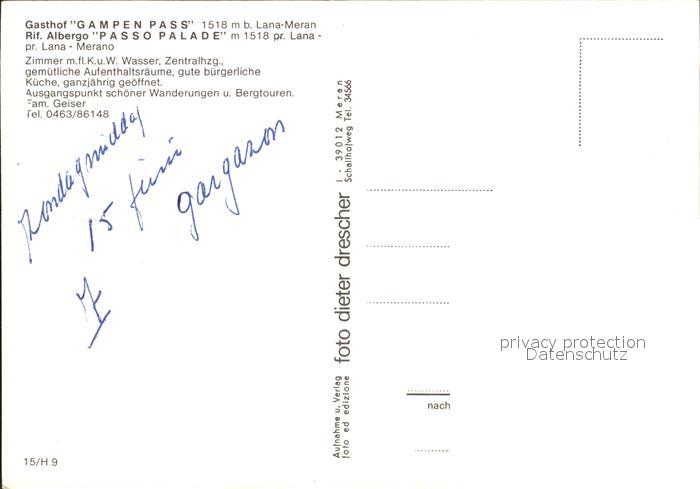 Gasthof "GAMPEN PASS" 1518 m b. Lana-Meran
Rif. Albergo "PASSO PALADE" m 1518 pr. Lana -
pr. Lana - Merano
Zimmer m.fl.K.u.W. Wasser, Zentralhzg.,
gemütliche Aufenthaltsräume, gute bürgerliche
Küche, ganzjährig geöffnet.
Ausgangspunkt schöner Wanderungen u. Bergtouren.
Fam. Geiser
Tel. 0463/86148
Zondagmiddag
15 juni
gargazon
15/H 9
Aufnahme u. Verlag
foto ed edizione
foto dieter drescher
I - 39012 Meran
Schallhofweg Tel. 34566
privacy protection
Datenschutz
nach